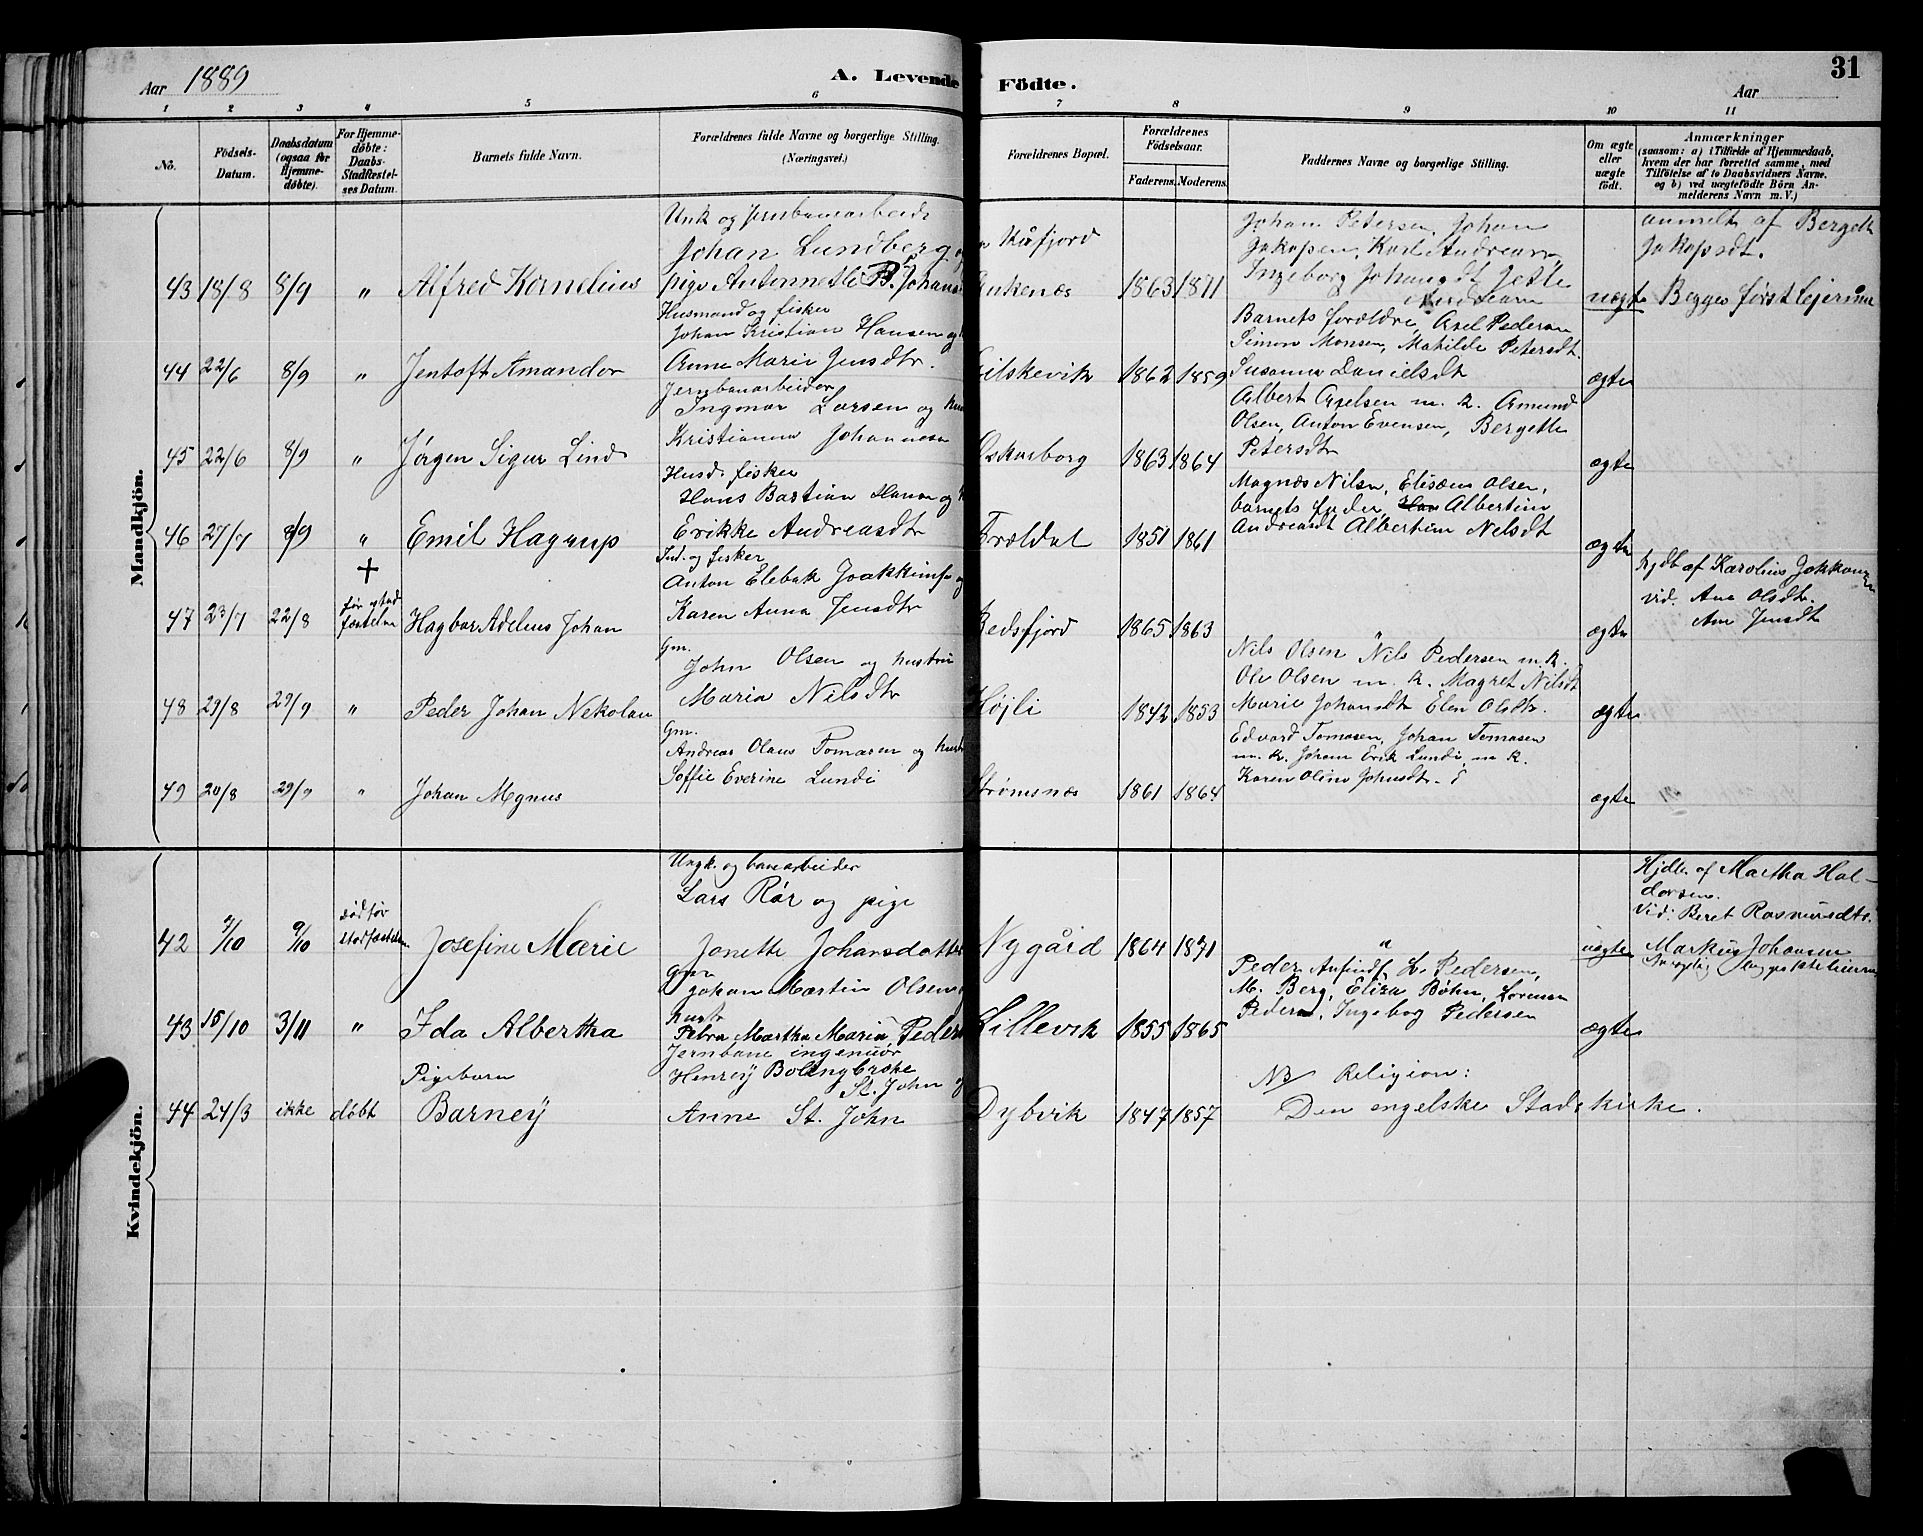 Aar 1889
A. Levende Födte.
Aar
31
1 2 3 4 5 6 7 8 9 10 11
No.
Födsels-Datum.
Daabsdatum (ogsaa for Hjemme-döbte).
For Hjemme-döbte: Daabs-Stadfæstel-ses Datum.
Barnets fulde Navn.
Forældrenes fulde Navne og borgerlige Stilling. (Næringsvei.)
Forældrenes Bopæl.
Forældrenes Födselsaar.
Faderens. Moderens.
Faddernes Navne og borgerlige Stilling.
Om ægte eller uægte födt.
Anmærkninger
(saasom: a) i Tilfælde af Hjemmedaab,
hvem der har forrettet samme, med
Tilföielse af to Daabsvidners Navne.
og b) ved uægtefödte Börn An-
melderens Navn m. V.)
Mandkjön.
Unk og jernbanarbeide
Johan Lundberg og
43 18/8 8/9 " Alfred Kornelius pige Antonnette B. Johans
Kåfjord
Ankenæs 1863 1871
Johan Petersen, Johan
Jakopsen, Karl Andreasen,
Ingeborg Johansdt Jette
Andreasen
uægte
anmelt af Bergete
Jakopsdt.
Begges først lejermål
Husmand og fisker
Johan Kristian Hansen og
44 22/6 8/9 " Jentoft Amandor Anne Marie Jensdtr.
1862 1859
Barnets forældre, Axel Pedersen
Simon Monsen, Matilde Petersdt.
Susanna Danielsdt
ægte
Jernbanarbeider
Ingmar Larsen og hus
45 22/6 8/9 " Jørgen Sigur Lind Kristianna Johannesen
Oskarborg 1863 1864
Albert Axelsen m. k. Amund
Olsen, Anton Evensen, Bergette
Petersdtr
ægte
Husd. fisker
Hans Bastian Hansen og
46 27/7 8/9 " Emil Hagrup Erikke Andreasdtr
Trældal 1851 1861
Magnæs Nilsen, Elisæus Olsen,
barnets fader, Albertine
Andreasdt Albertine Nelsdt
ægte
Ind. og fisker
Anton Elebak Joakkimsen og
47 23/7 22/8 + før stadfæstelse Hagbar Adelius Johan Karen Anna Jensdtr
1865 1863 "
ægte
hjdbt af Karolius Jakkomsen
vid. Ane Olsdtr.
Ane Jensdt
Gm.
John Olsen og hustru
48 29/8 29/9 " Peder Johan Nekolai Maria Nilsdtr
Højli 1842 1853
Nils Olsen Nils Pedersen m. k.
Ole Olsen m. k. Magret Nilsdt
Marie Johansdtr Elen Olsdtr.
ægte
Gm.
Andreas Olaus Tomasen og hustr
49 20/8 29/9 " Johan Magnus Soffie Everine Lundi
Strømsnæs 1861 1864
Edvard Tomasen, Johan Tomasen
m. k. Johan Erik Lundi, m k.
Karen Oline Johnsdtr.
ægte
Kvindekjön.
Ungk. og banearbeider
Lars Rør og pige
42 7/10 9/10 død før stadfæstelsen Josefine Marie Jonette Johansdatter
Nygård 1864 1871 "
uægte
Hjdbt. af Martha Hal-
dorsen.
Vid: Beret Rasmusdtr.
Markus Johansen
Gm
Johan Martin Olsen
hustr
43 15/10 3/11 " Ida Albertha Petra Martha Maria Peders
Lillevik 1855 1865
Peder Anfindsen, L. Pedersen,
M. Berg, Eliza Bøhn, Lorense
Pedersen, Ingebog Pedersen
ægte
Pigebarn
Jernbane ingeniør
Henrey Bolingbroke
St. John og
44 24/3 ikke døbt Barney Anne St. John
Dybvik 1847 1857
NB Religion:
Den engelske Statskirke.